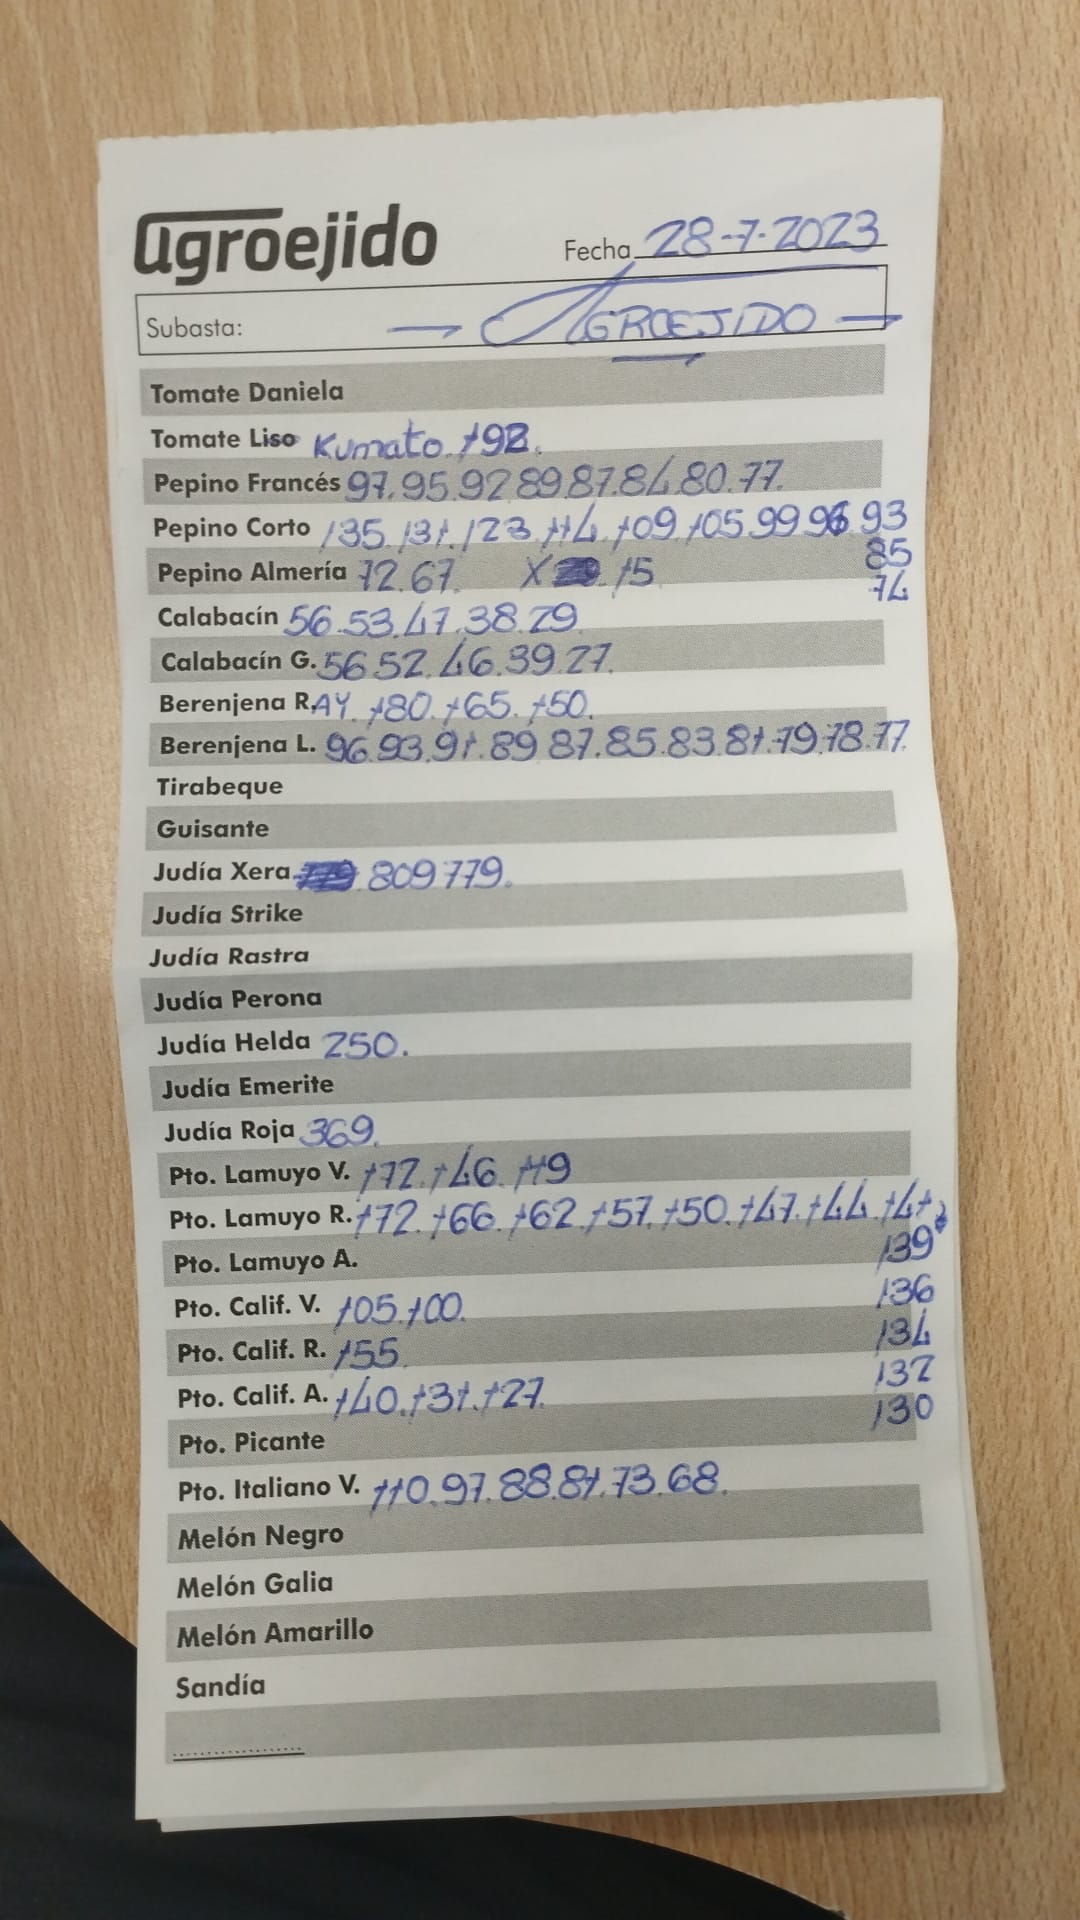 agroejido
Fecha 28-7-2023
Subasta: AGROEJIDO
Tomate Daniela
Tomate Liso Kumato. 192.
Pepino Francés 97.95.92 89 87.84.80.77.
Pepino Corto 135.131.123.114.109.105.99 96 93
85
74
Pepino Almería 72.67. X 15
Calabacín 56.53.47.38.29
Calabacín G. 56 52.46.39.27.
Berenjena R. AY. 180.165.150.
Berenjena L. 96.93.91.89 87.85.83.81.79.78.77.
Tirabeque
Guisante
Judía Xera 809 779.
Judía Strike
Judía Rastra
Judía Perona
Judía Helda 250.
Judía Emerite
Judía Roja 369.
Pto. Lamuyo V. 172.146.119
Pto. Lamuyo R. 172.166.162.157.150.147.144.141
139
136
134
132
130
Pto. Lamuyo A.
Pto. Calif. V. 105.100.
Pto. Calif. R. 155
Pto. Calif. A. 140.131.127.
Pto. Picante
Pto. Italiano V. 110.97.88.81.73.68.
Melón Negro
Melón Galia
Melón Amarillo
Sandía